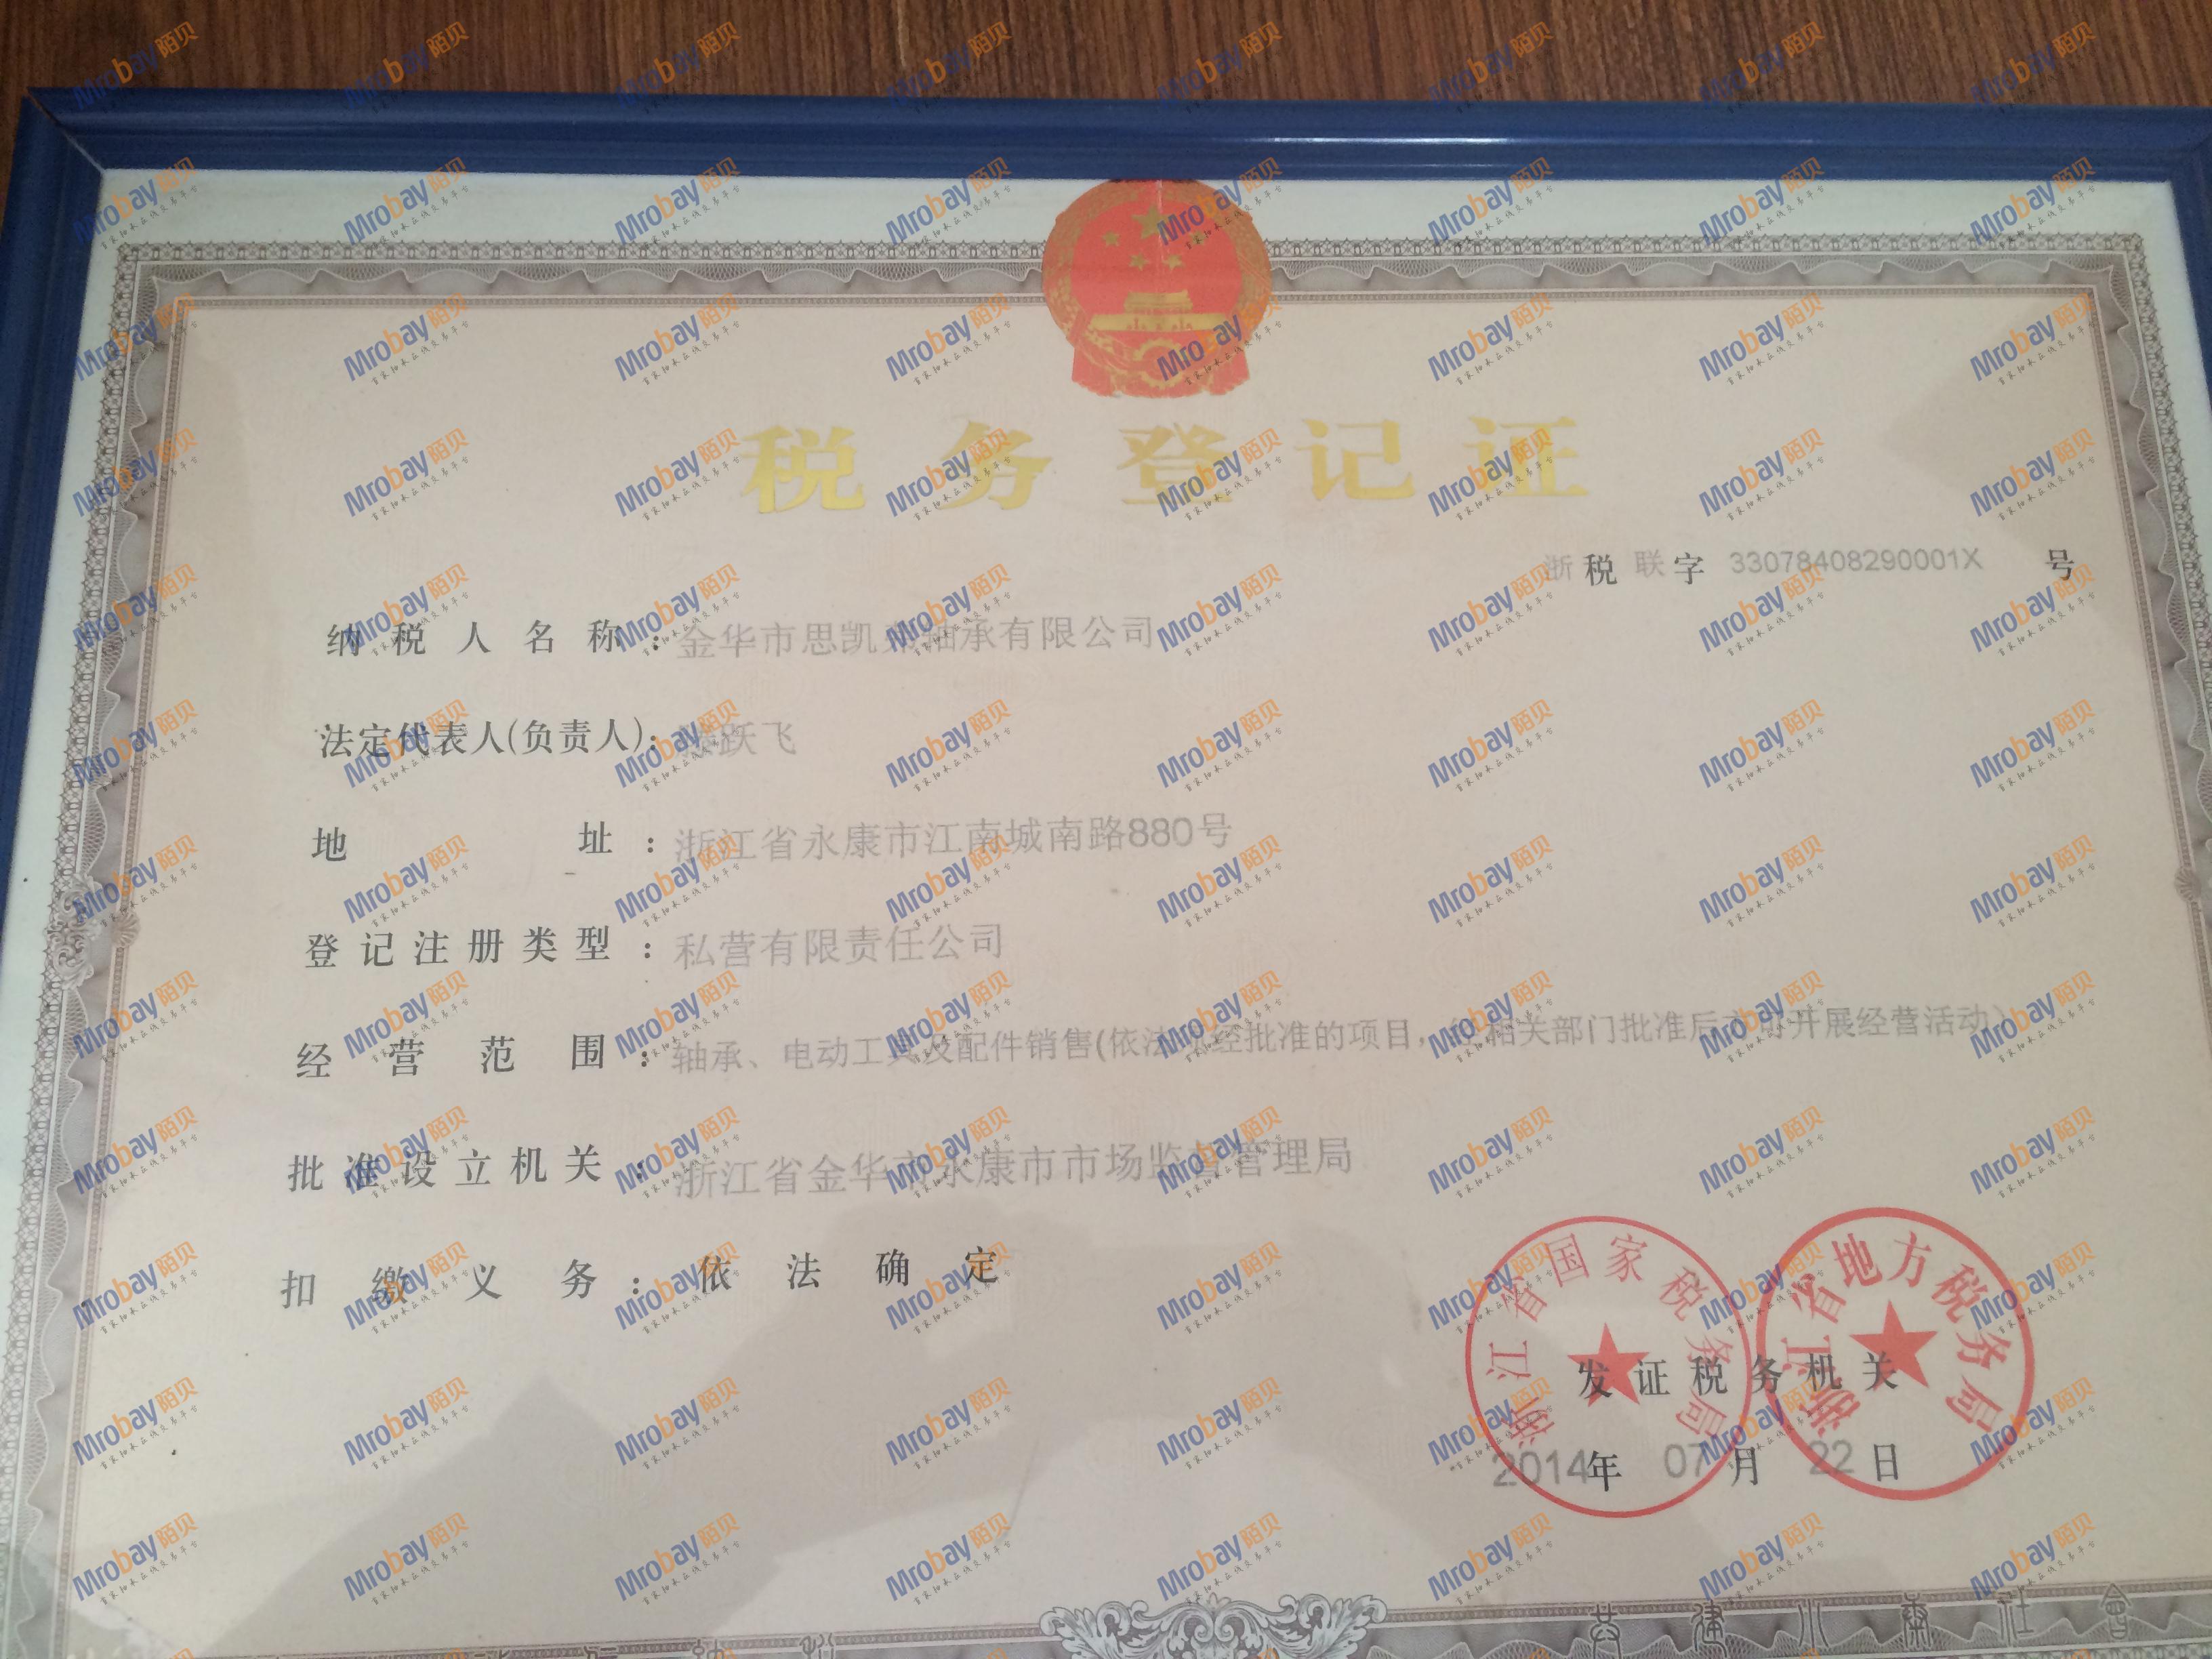 税务登记证
浙税联字 33078408290001X 号
纳税人名称：金华市思凯弗轴承有限公司
法定代表人(负责人)：跃飞
地址：浙江省永康市江南城南路880号
登记注册类型：私营有限责任公司
经营范围：轴承、电动工具及配件销售(依法须经批准的项目，经相关部门批准后方可开展经营活动)
批准设立机关：浙江省金华市永康市市场监督管理局
扣缴义务：依法确定
浙江省国家税务局
浙江省地方税务局
发证税务机关
2014年 07月 22日
共建小康社會
Mrobay陌贝